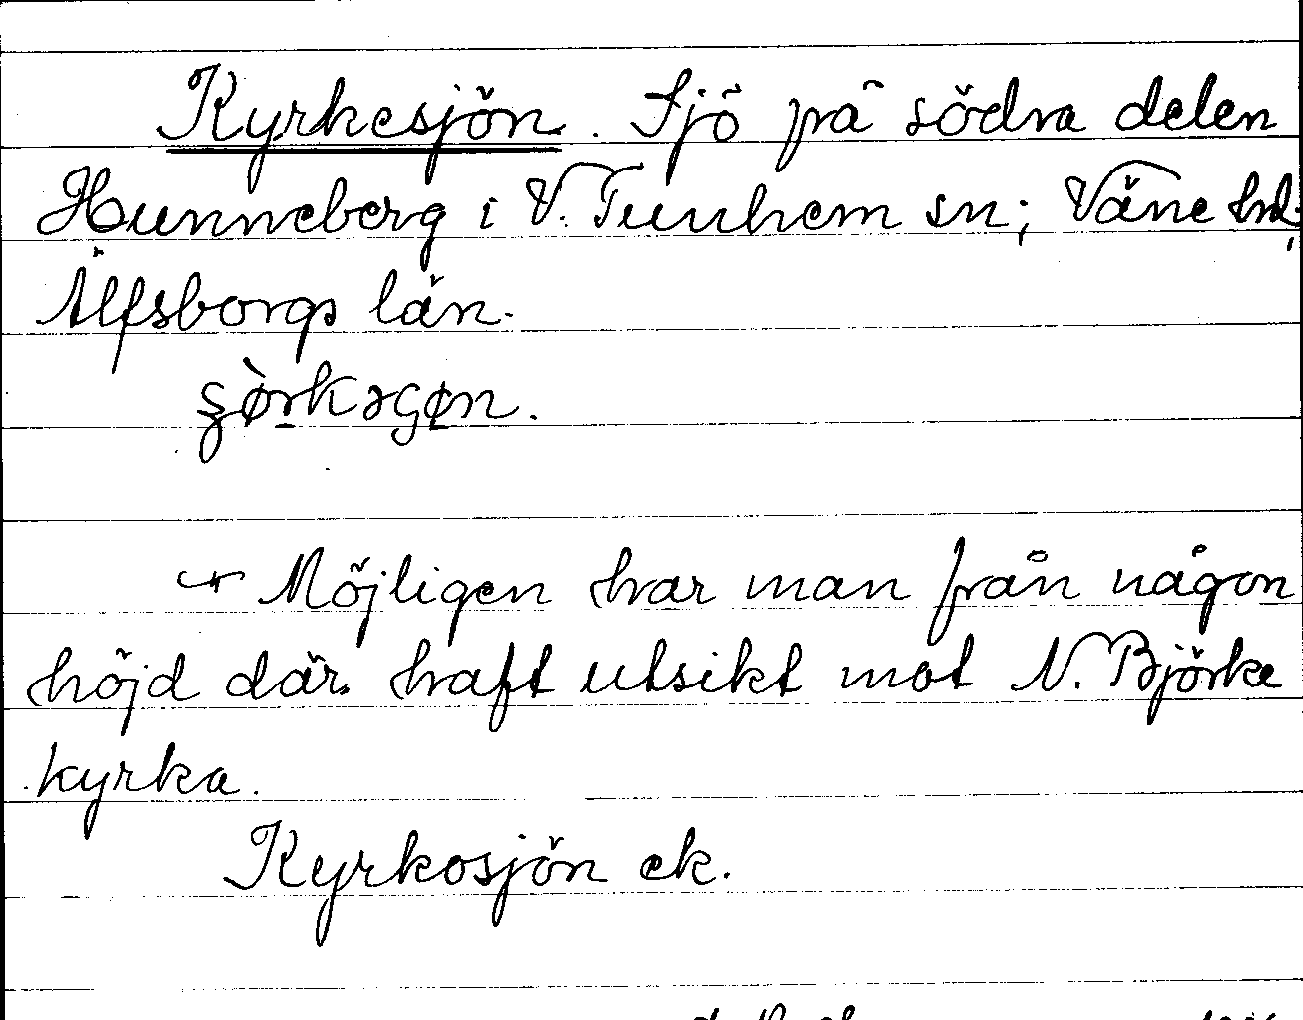 Kyrkesjön. Sjö på södra delen
Hunneberg i V. Tunhem sn; Väne hd.,
Älfsborgs län.
Möjligen har man från någon
höjd där haft utsikt mot N. Björke
kyrka.
Kyrkosjön ek.